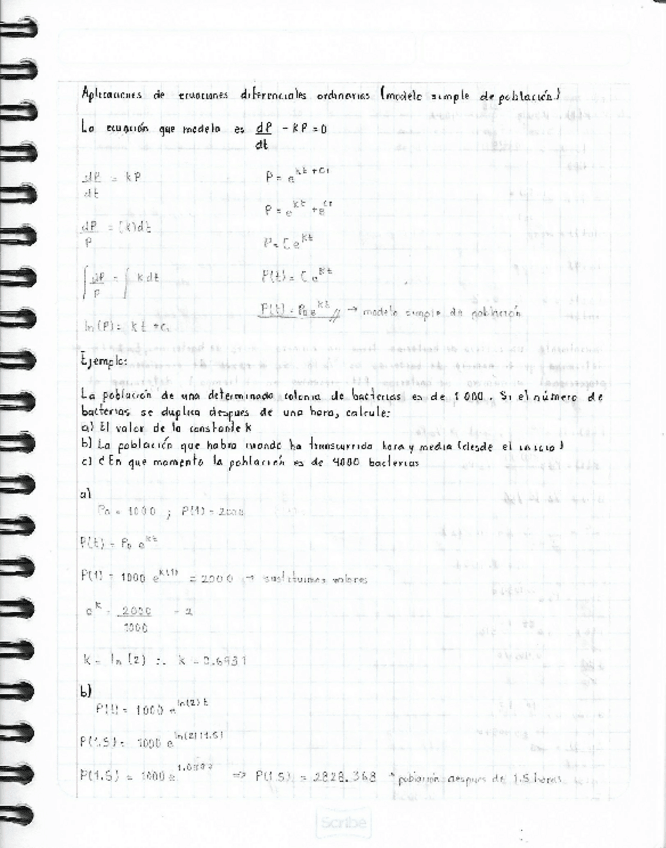 Aplicaciones de ecuaciones diferenciales ordinarias (modelo simple de población)
La ecuación que modela es dP/dt - KP = 0
dP/dt = kP
dP/P = (k)dt
∫ dP/P = ∫ k dt
ln(P) = kt + c₁
P = e^{kt + c1}
P = e^{kt} + e^{c1}
P = C e^{kt}
P(t) = C e^{kt}
P(t) = P₀ e^{kt} // → modelo simple de población
Ejemplo:
La población de una determinada colonia de bacterias es de 1000. Si el número de
bacterias se duplica despues de una hora, calcule:
a) El valor de la constante k
b) La población que habra cuando ha transcurrido hora y media (desde el inicio)
c) ¿En que momento la población es de 4000 bacterias
a)
P₀ = 1000 ; P(1) = 2000
P(t) = P₀ e^{kt}
P(1) = 1000 e^{k(1)} = 2000 → sustituimos valores
e^k = 2000/1000 = 2
k = ln(2) ∴ k = 0.6931
b)
P(t) = 1000 e^{ln(2) t}
P(1.5) = 1000 e^{ln(2)(1.5)}
P(1.5) = 1000 e ⇒ P(1.5) = 2828.368 * población despues de 1.5 horas
Scribe